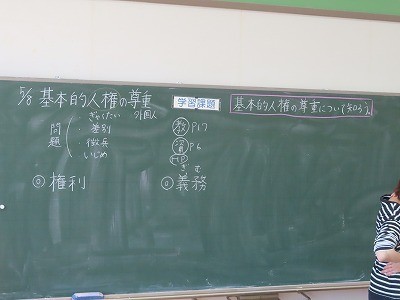 5/8 基本的人権の尊重
学習課題
基本的人権の尊重について知ろう。
ぎゃくたい 外国人
問題
・差別
・徴兵
・いじめ
教 P17
資 P6
HP
◎権利
ぎむ
◎義務